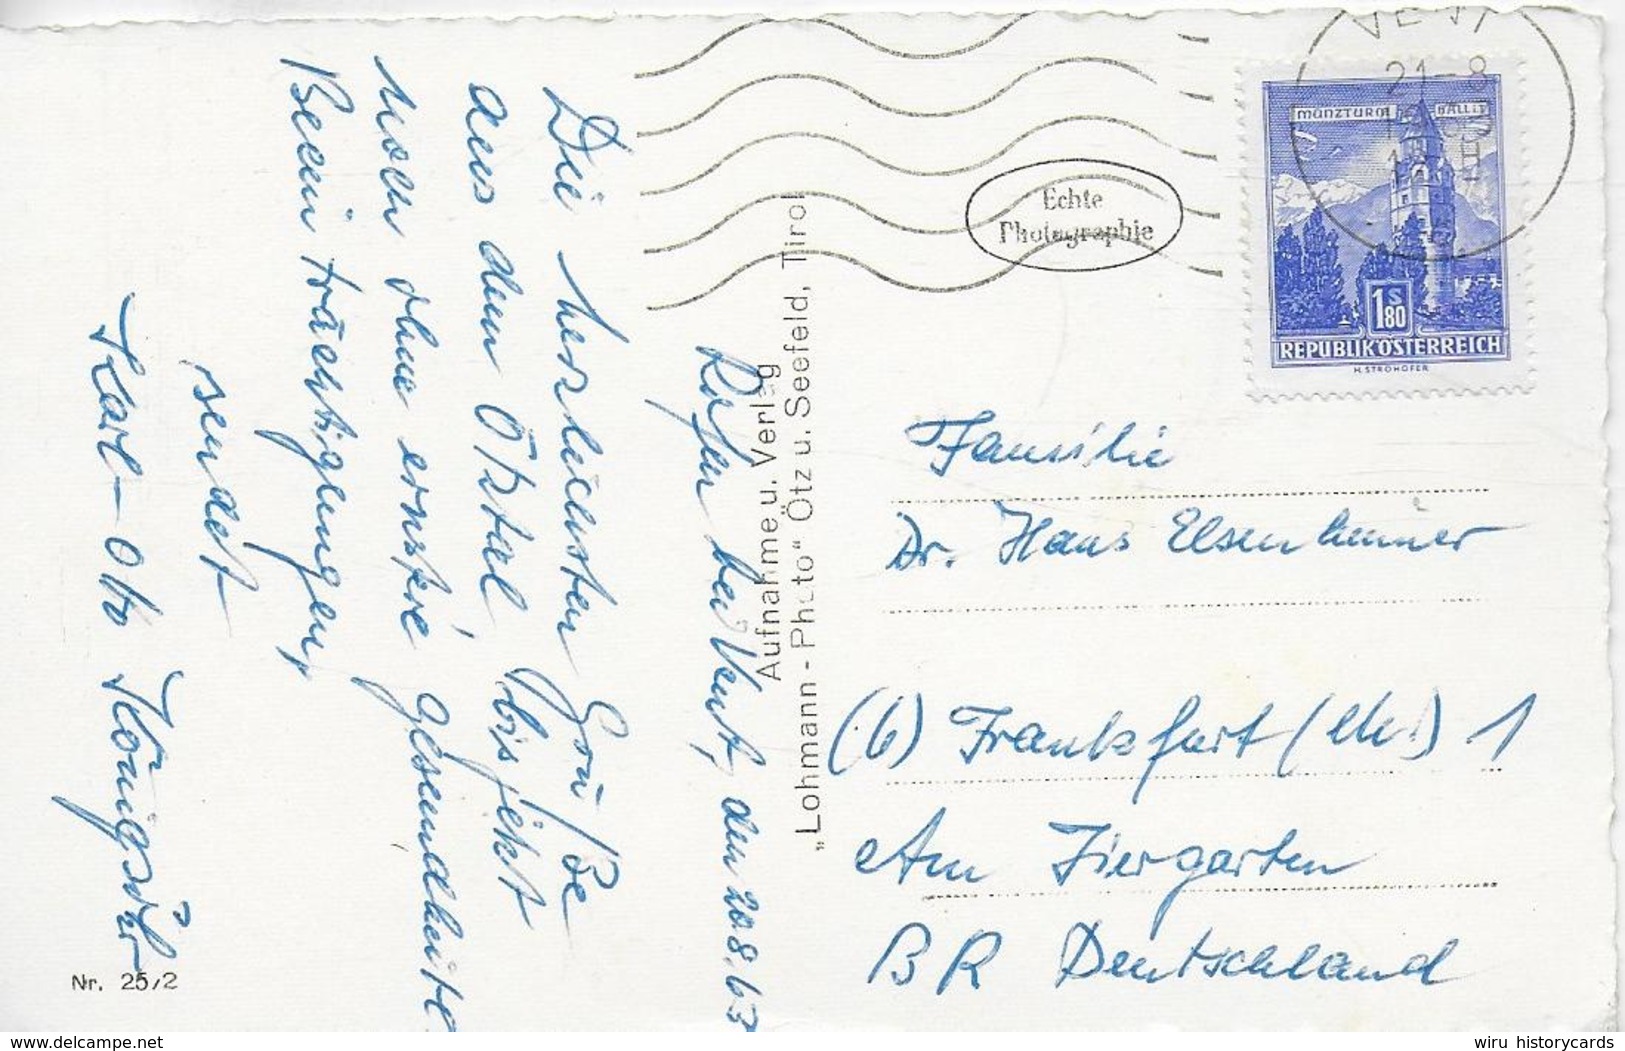 Rofen bei Vent, den 20.8.63
Die herzlichsten Grüße
aus dem Ötztal, bis jetzt
noch ohne ernstere gesundheitl.
Beeinträchtigungen,
sendet
Karl-Otto
Nr. 25/2
Aufnahme u. Verlag
„Lohmann - Photo" Ötz u. Seefeld, Tirol
Echte
Photographie
VENT
21-8
MÜNZTURM
HALL i T
1 S 80
REPUBLIK ÖSTERREICH
H. STROHOFER
Familie
Dr. Hans Elsenheimer
(6) Frankfurt (M.) 1
Am Tiergarten
BR Deutschland
delcampe.net
wiru historycards